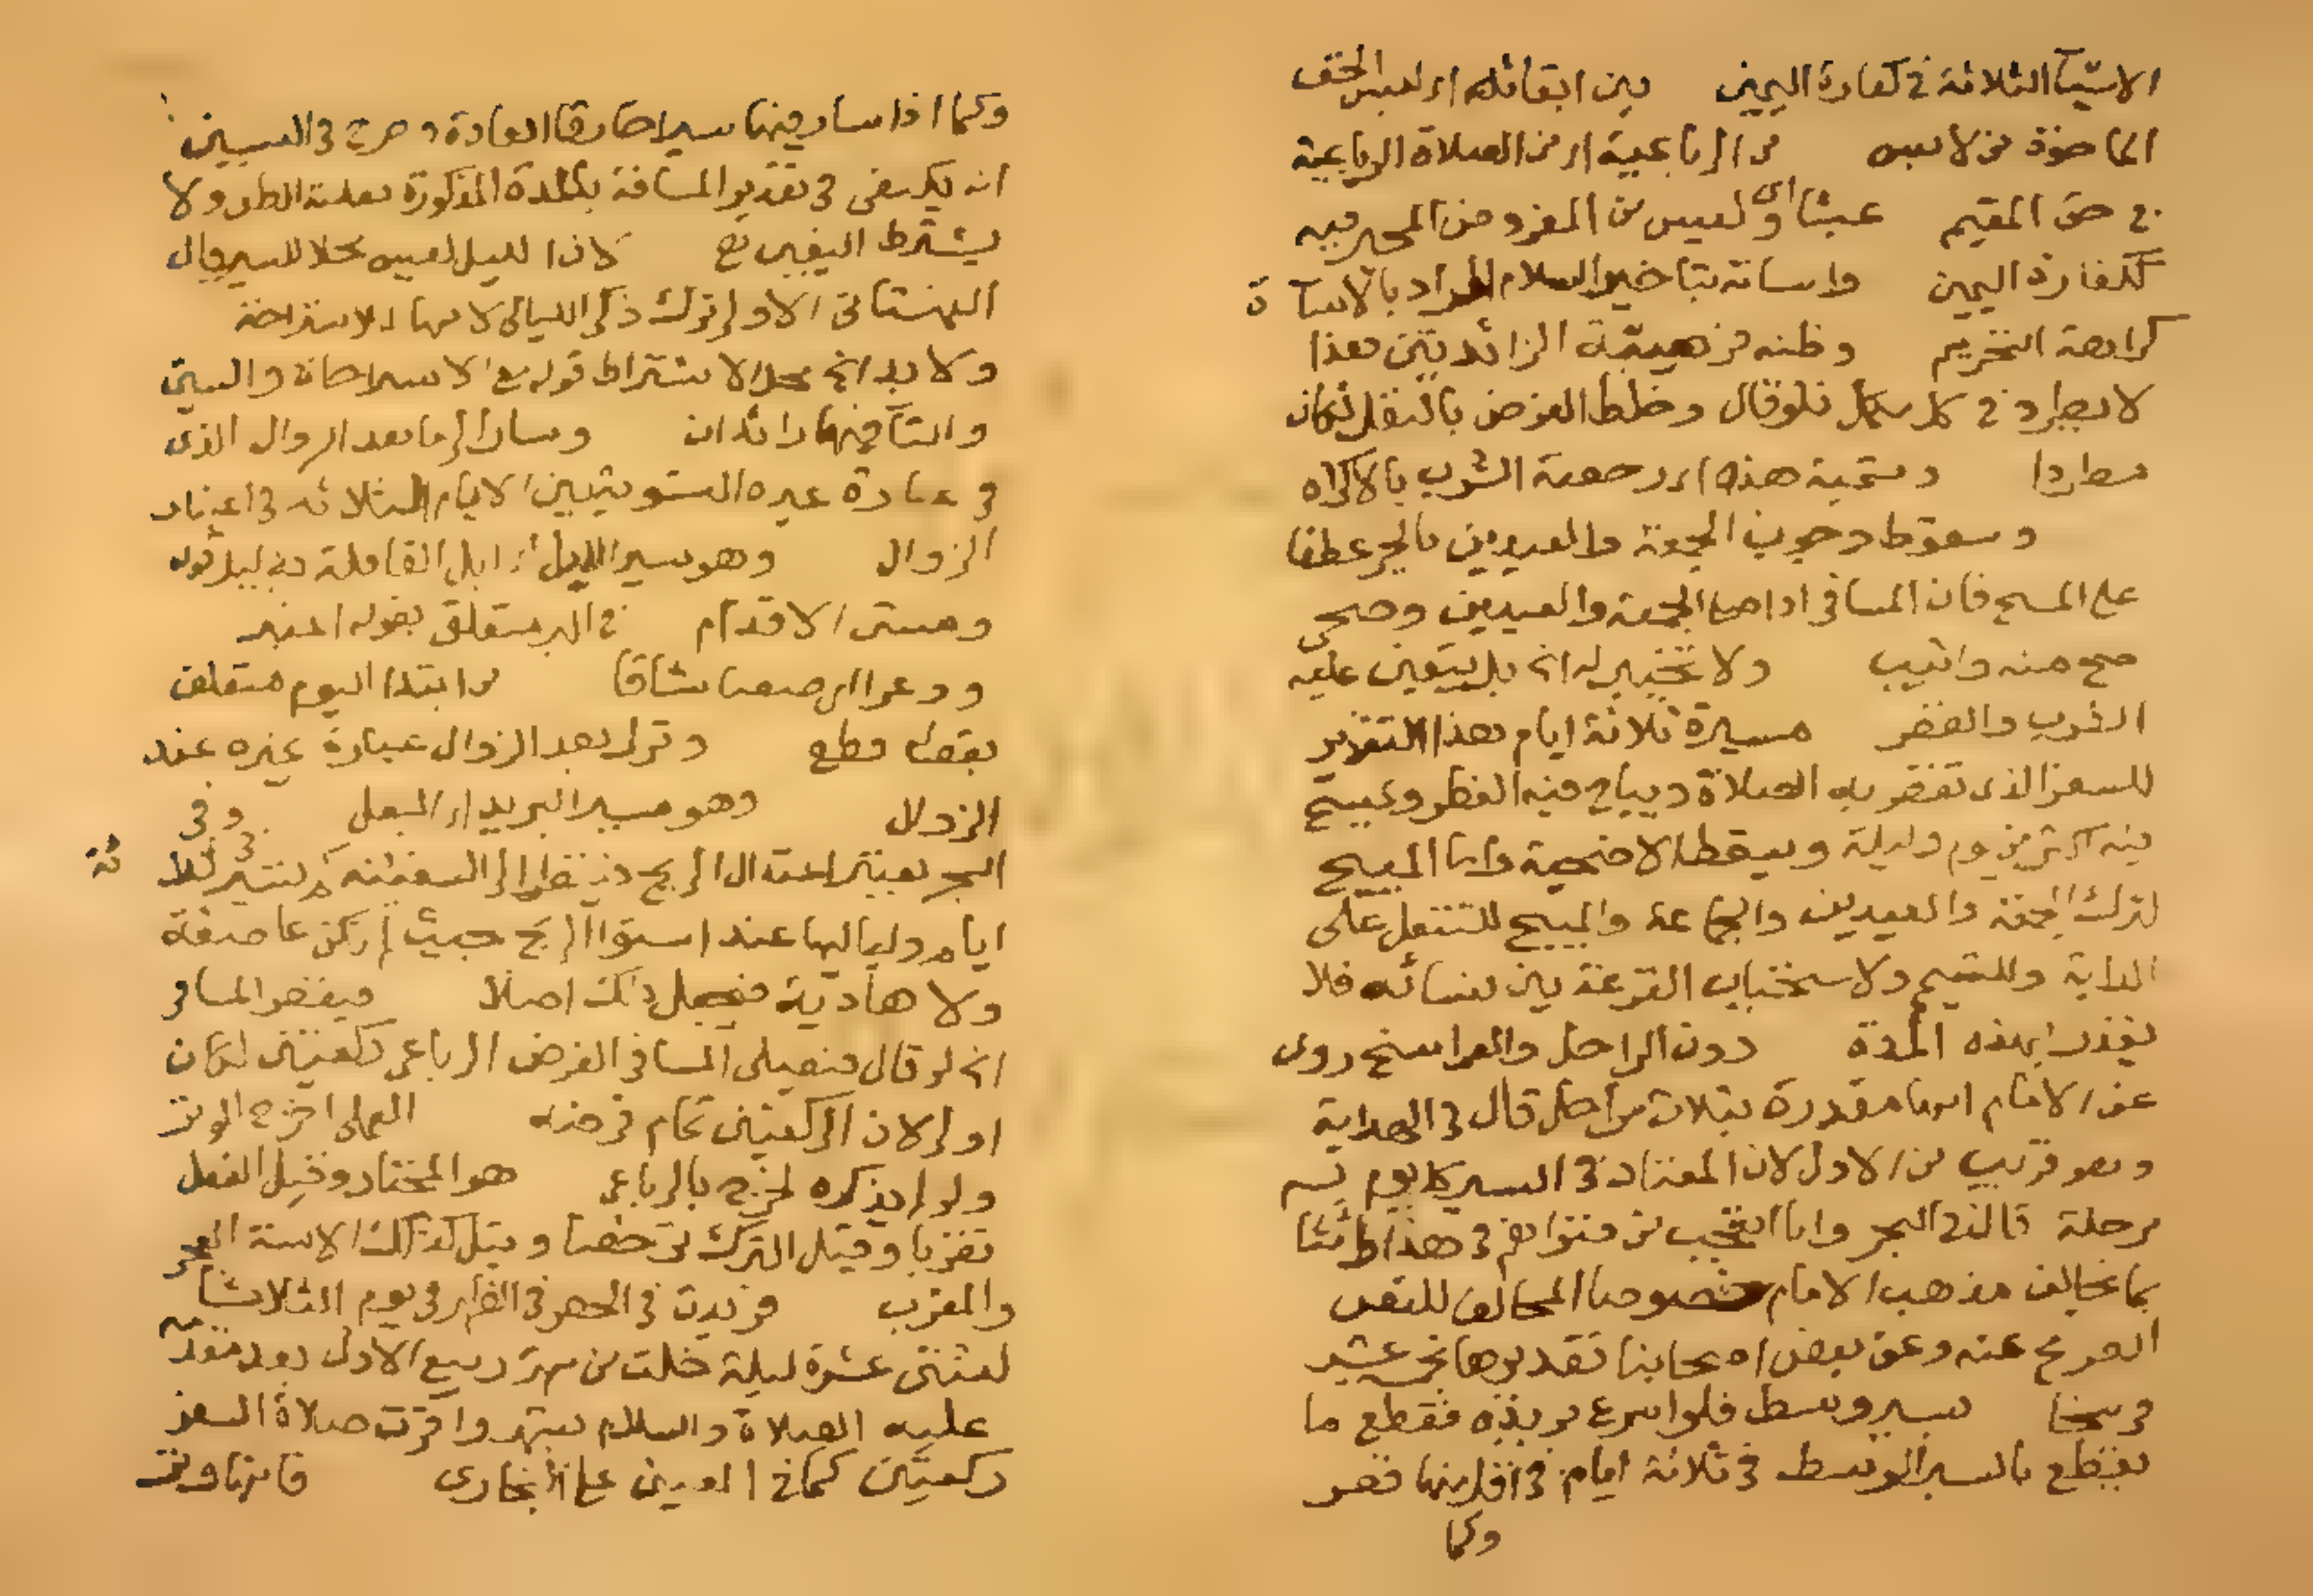 الاشيا الثلاثة في كفارة اليمين بين ابقائه او لبس الخف
الماخوذ من لابسه من الرباعية او من الصلاة الرباعية
في حق المقيم عبثا اى وليس من المفرد من المخير فيه
ككفارة اليمين واسانة بتاخير السلام المراد بالاسآ ة
كراهة التحريم وظنه فرضية الزائدتين هذا
لا يطرد في كل مكمل فلو قال وخلط الفرض بالنفل لكان
مطردا وتسمية هذه اى رخصة الشرب بالاكراه
وسقوط وجوب الجمعة والعيدين بالجر عطفا
على المسح فان المسافر اذا صلى الجمعة والعيدين وضحى
صح منه واثيب ولا تخيير له انه بل يتعين عليه
الشرب والفطر مسيرة ثلاثة ايام هذا التقدير
للسفر الذى تقصر به الصلاة ويباح فيه الفطر ويمسح
فيه اكثر من يوم وليلة ويسقط الاضحية واما المبيح
لترك الجمعة والعيدين والجماعة والمبيح للتنفل على
الدابة وللتيمم ولاستحباب القرعة بين نسائه فلا
يقدر بهذه المدة دون المراحل والفراسخ روى
عن الامام انها مقدرة بثلاث مراحل قال في الهداية
وهو قريب من الاول لان المعتاد في السير كل يوم
مرحلة قال في البحر وانا اتعجب من فتواهم في هذا وامثالها
بما يخالف مذهب الامام خصوصا المخالف للنص
الصريح عنه وعن بعض اصحابنا تقديرها بخمسة عشر
فرسخا بسير وسط فلو اسرع بريده فقطع ما
يقطع بالسير الوسط في ثلاثة ايام في اقل منها قصر
وكما
وكما اذا سار فيها سيرا خارقا للعادة وصرح في التبيين
انه يكتفى في تقدير المسافة بالمدة المذكورة بغلبة الظن ولا
يشترط اليقين كان الليل ليس محلا للسير وقال
القهستانى الاولى ترك ذكر الليالى لانها للاستراحة
ولا بد انه محل الاشتراط قوله مع الاستراحات والسين
والتآ فيها زائدتان وسار الى ما بعد الزوال الذى
في عبارة غيره التسوية بين الايام الثلاثة في اعتبار
الزوال وهو سير الابل اى ابل القافلة
ومشى الاقدام في البر متعلق بقوله اعتبر
ووعرا اى صعبا شاقا من ابتدا اليوم متعلق
بقوله قطع وترك بعد الزوال عبارة غيره عند
الزوال وهو سير البريد اى البغل وفى
البحر يعتبر اعتدال الريح فينظر الى السفينة كم تسير في ثلا ثة
ايام ولياليها عند استوا الريح حيث لم تكن عاصفة
ولا هادية فيجعل ذلك اصلا فيقصر المسافر
انه لو قال فيصلى المسافر الفرض الرباعى ركعتين لكان
اولى لان الركعتين تمام فرضه العملى اخرج الوتر
ولو لم يذكره لخرج بالرباعى هو المختار وقيل الفعل
تقربا وقيل الترك ترخصا وقيل كذلك الا سنة الفجر
والمغرب فزيدت في الحضر في الظهر في يوم الثلاثا
لثنتى عشرة ليلة خلت من شهر ربيع الاول بعد مقدمه
عليه الصلاة والسلام بشهر واقرت صلاة السفر
ركعتين كما في العينى على البخارى فانها وتر